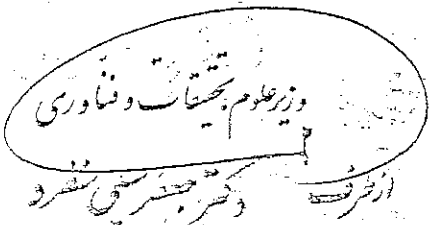 وزیر علوم، تحقیقات و فناوری
از طرف دکتر جعفر